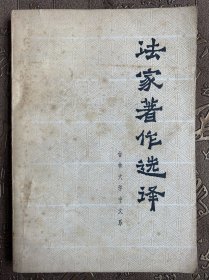 法家著作选译
吉林大学中文系